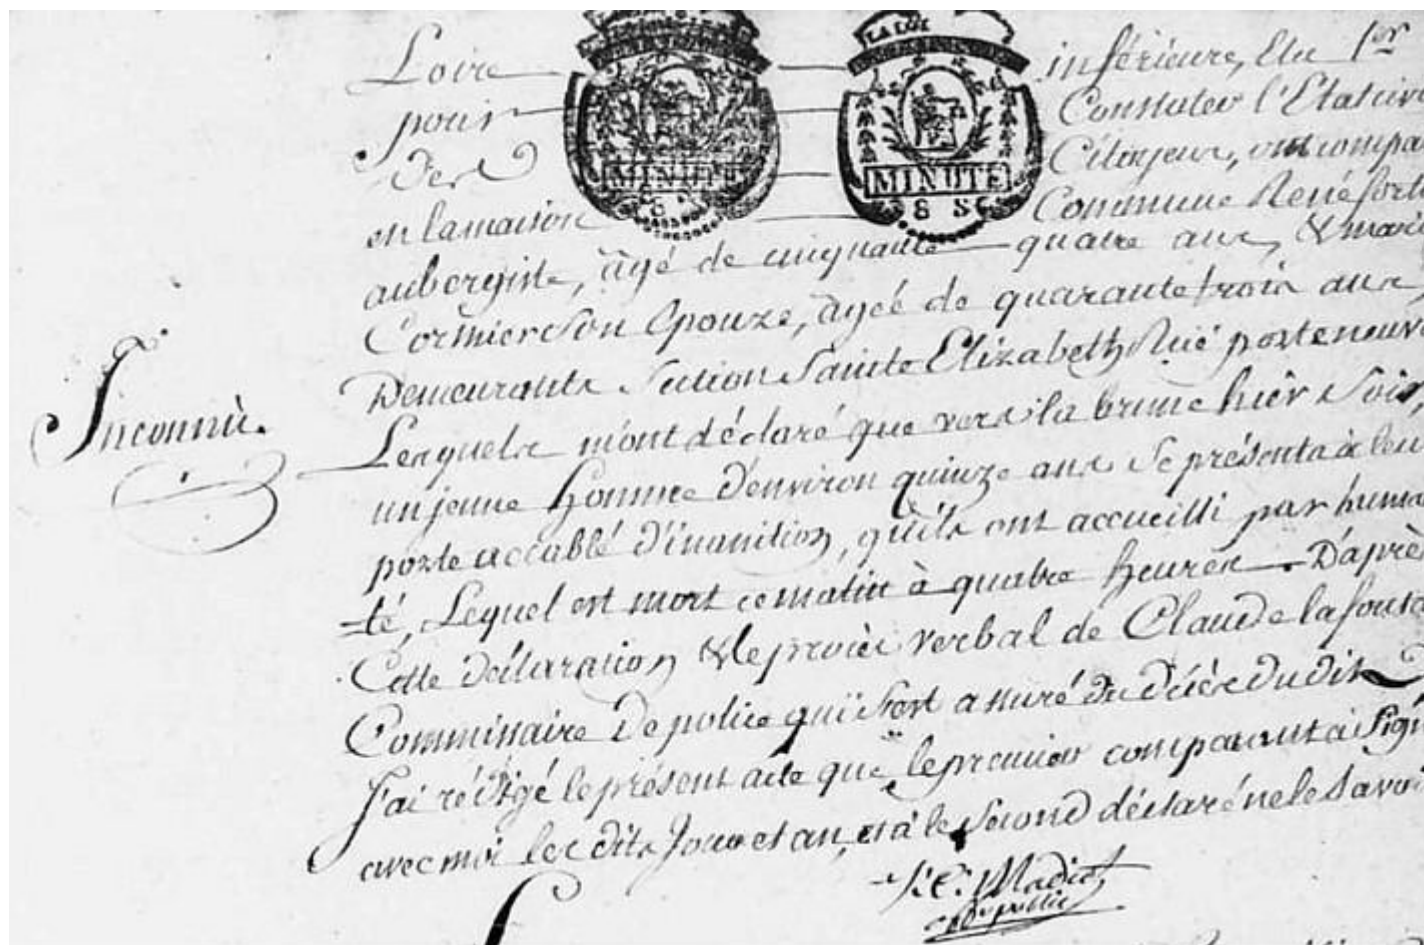 LA LOI
Loire inférieure, Elu 1er
pour Constater l'Etat civ
des Citoyens, ont compa
MINUTE MINUTE
8 S
en la maison Commune René fort
aubergiste, âgé de cinquante-quatre ans, & mari
Cormier Son Epouze, âgée de quarante trois ans,
Demeurants Section Sainte Elizabeth Rue porte neuve
Inconnu.
Lesquels m'ont déclaré que vers la brune hier soir,
un jeune homme d'environ quinze ans se présenta à leu
porte accablé d'inanition, qu'ils ont accueilli par huma
té, Lequel est mort ce matin à quatre heures. D'après
Cette déclaration & le procès verbal de Claude lafont
Commissaire De police qui s'est assuré du Décès du dit
J'ai rédigé le présent acte que le premier comparant a Sign
avec moi les dits Jour et an, et à le Second déclaré ne le Savoi